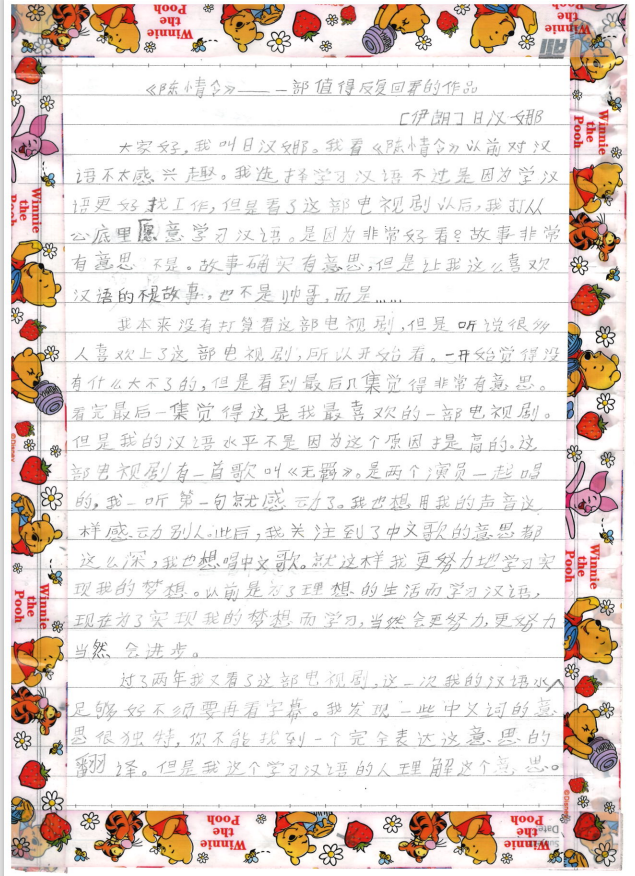 《陈情令》——一部值得反复回看的作品
[伊朗] 日汉娜
大家好，我叫日汉娜。我看《陈情令》以前对汉
语不太感兴趣。我选择学习汉语不过是因为学汉
语更好找工作，但是看了这部电视剧以后，我打从
心底里愿意学习汉语。是因为非常好看？故事非常
有意思 不是。故事确实有意思，但是让我这么喜欢
汉语的不是故事，也不是帅哥，而是……
我本来没有打算看这部电视剧，但是听说很多
人喜欢上了这部电视剧，所以开始看。一开始觉得没
有什么大不了的，但是看到最后几集觉得非常有意思。
看完最后一集觉得这是我最喜欢的一部电视剧。
但是我的汉语水平不是因为这个原因提高的。这
部电视剧有一首歌叫《无羁》。是两个演员一起唱
的，我一听第一句就感动了。我也想用我的声音这
样感动别人。此后，我关注到了中文歌的意思都
这么深，我也想唱中文歌。就这样我更努力地学习实
现我的梦想。以前是为了理想的生活而学习汉语，
现在为了实现我的梦想而学习，当然会更努力，更努力
当然会进步。
过了两年我又看了这部电视剧，这一次我的汉语水
足够好不须要再看字幕。我发现一些中文词的意
思很独特，你不能找到一个完全表达这意思的
翻译。但是我这个学习汉语的人理解这个意思。
Winnie the Pooh
Winnie the Pooh
Winnie the Pooh
Winnie the Pooh
Winnie the Pooh
Winnie the Pooh
Winnie the Pooh
Winnie the Pooh
©Disney
Date